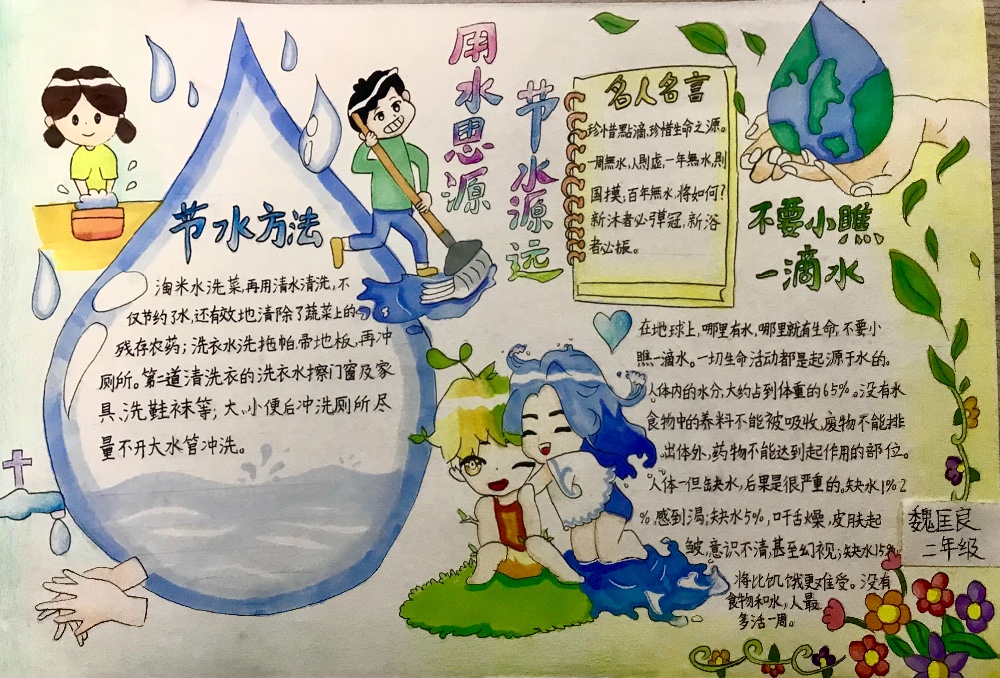 用水思源
节水源远
节水方法
淘米水洗菜,再用清水清洗,不
仅节约了水,还有效地清除了蔬菜上的
残存农药;洗衣水洗拖帕、帚地板,再冲
厕所。第二道清洗衣的洗衣水擦门窗及家
具、洗鞋袜等;大、小便后冲洗厕所尽
量不开大水管冲洗。
名人名言
珍惜點滴,珍惜生命之源。
一周無水,人則虚,一年無水,則
国摸;百年無水,将如何?
新沐者必弹冠,新浴
者必振。
不要小瞧
一滴水
在地球上,哪里有水,哪里就有生命,不要小
瞧一滴水。一切生命活动都是起源于水的。
人体内的水分,大约占到体重的65%。没有水
食物中的养料不能被吸收,废物不能排
出体外,药物不能达到起作用的部位。
人体一但缺水,后果是很严重的。缺水1%2
%,感到渴;缺水5%,口干舌燥,皮肤起
皱,意识不清,甚至幻视;缺水15%
将比饥饿更难受。没有
食物和水,人最
多活一周。
魏匡良
二年级